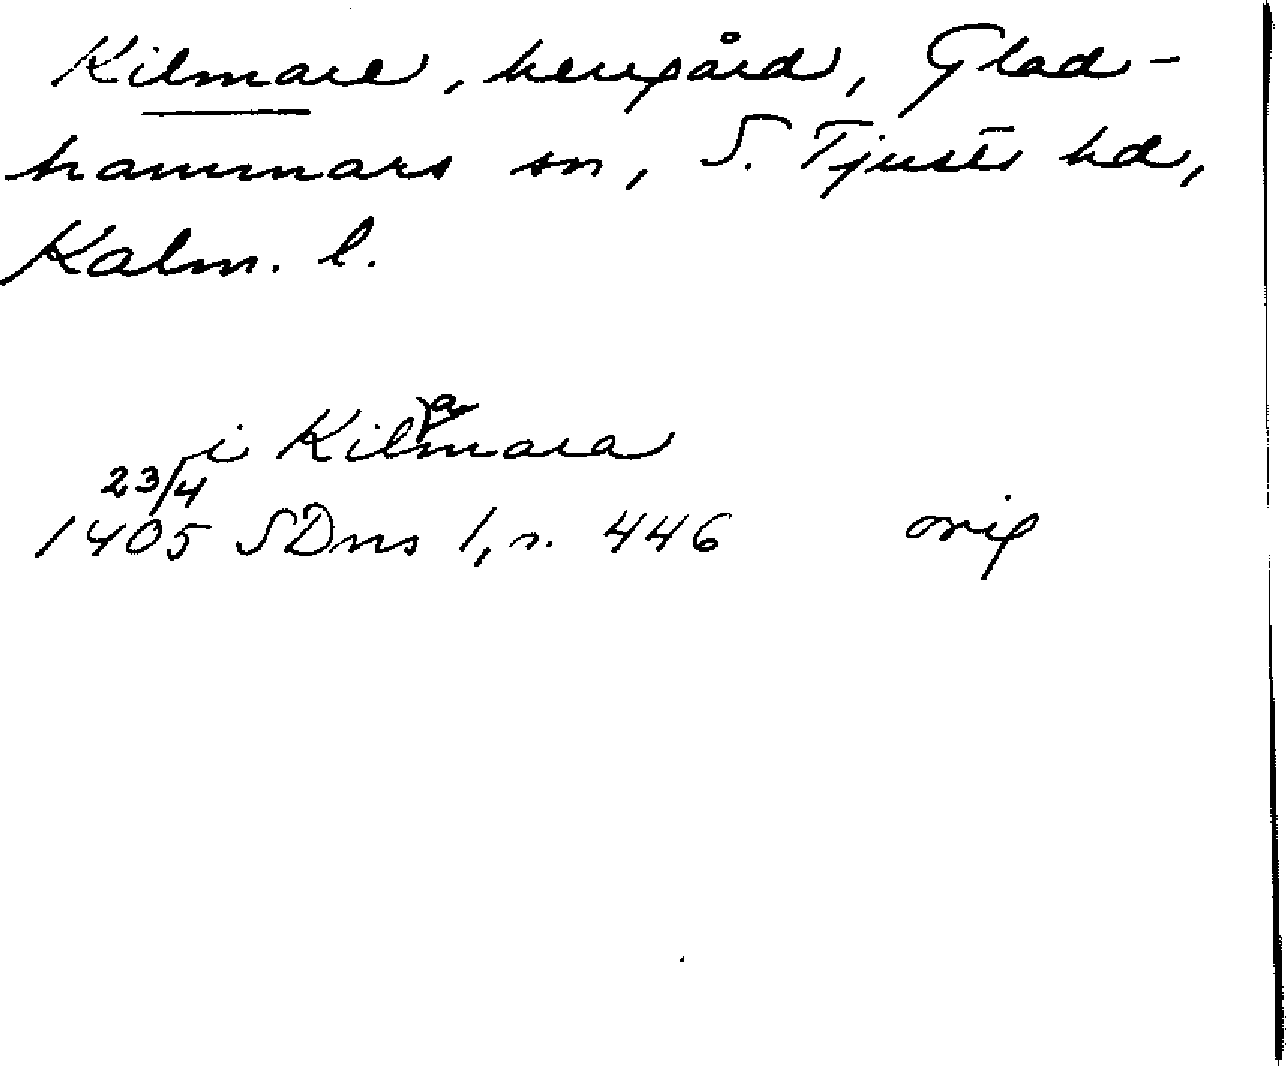 Kilmare, herrgård, Glad-
hammars sn, S. Tjusts hd,
Kalm. l.
i Kilamara
23/4
1405 SDns 1, s. 446 orig